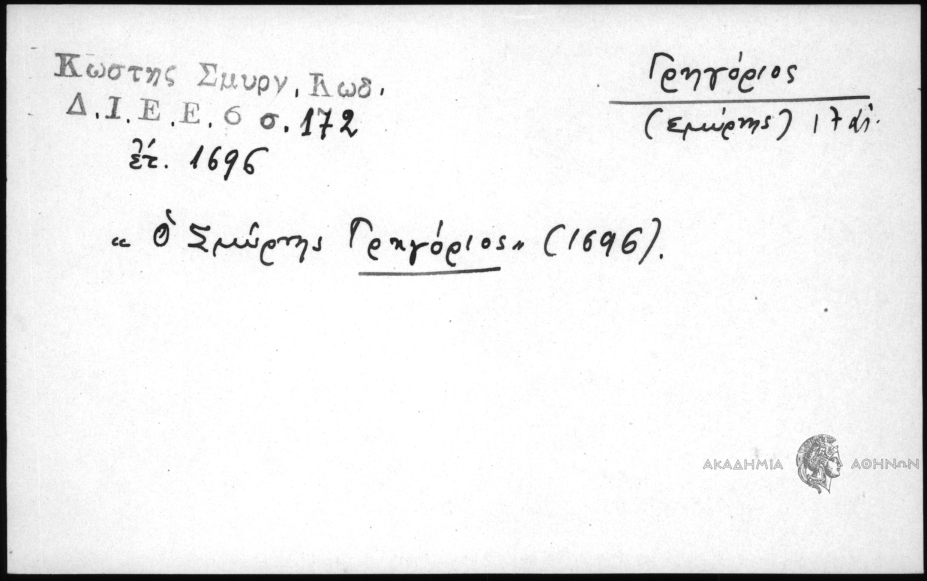 Κωστης Σμυρν. Κωδ.
Δ.Ι.Ε.Ε. 6 σ. 172
ἐτ. 1696
Γρηγόριος
(Σμύρνης) 17 αἰ.
« Ὁ Σμύρνης Γρηγόριος» (1696).
ΑΚΑΔΗΜΙΑ ΑΘΗΝΩΝ